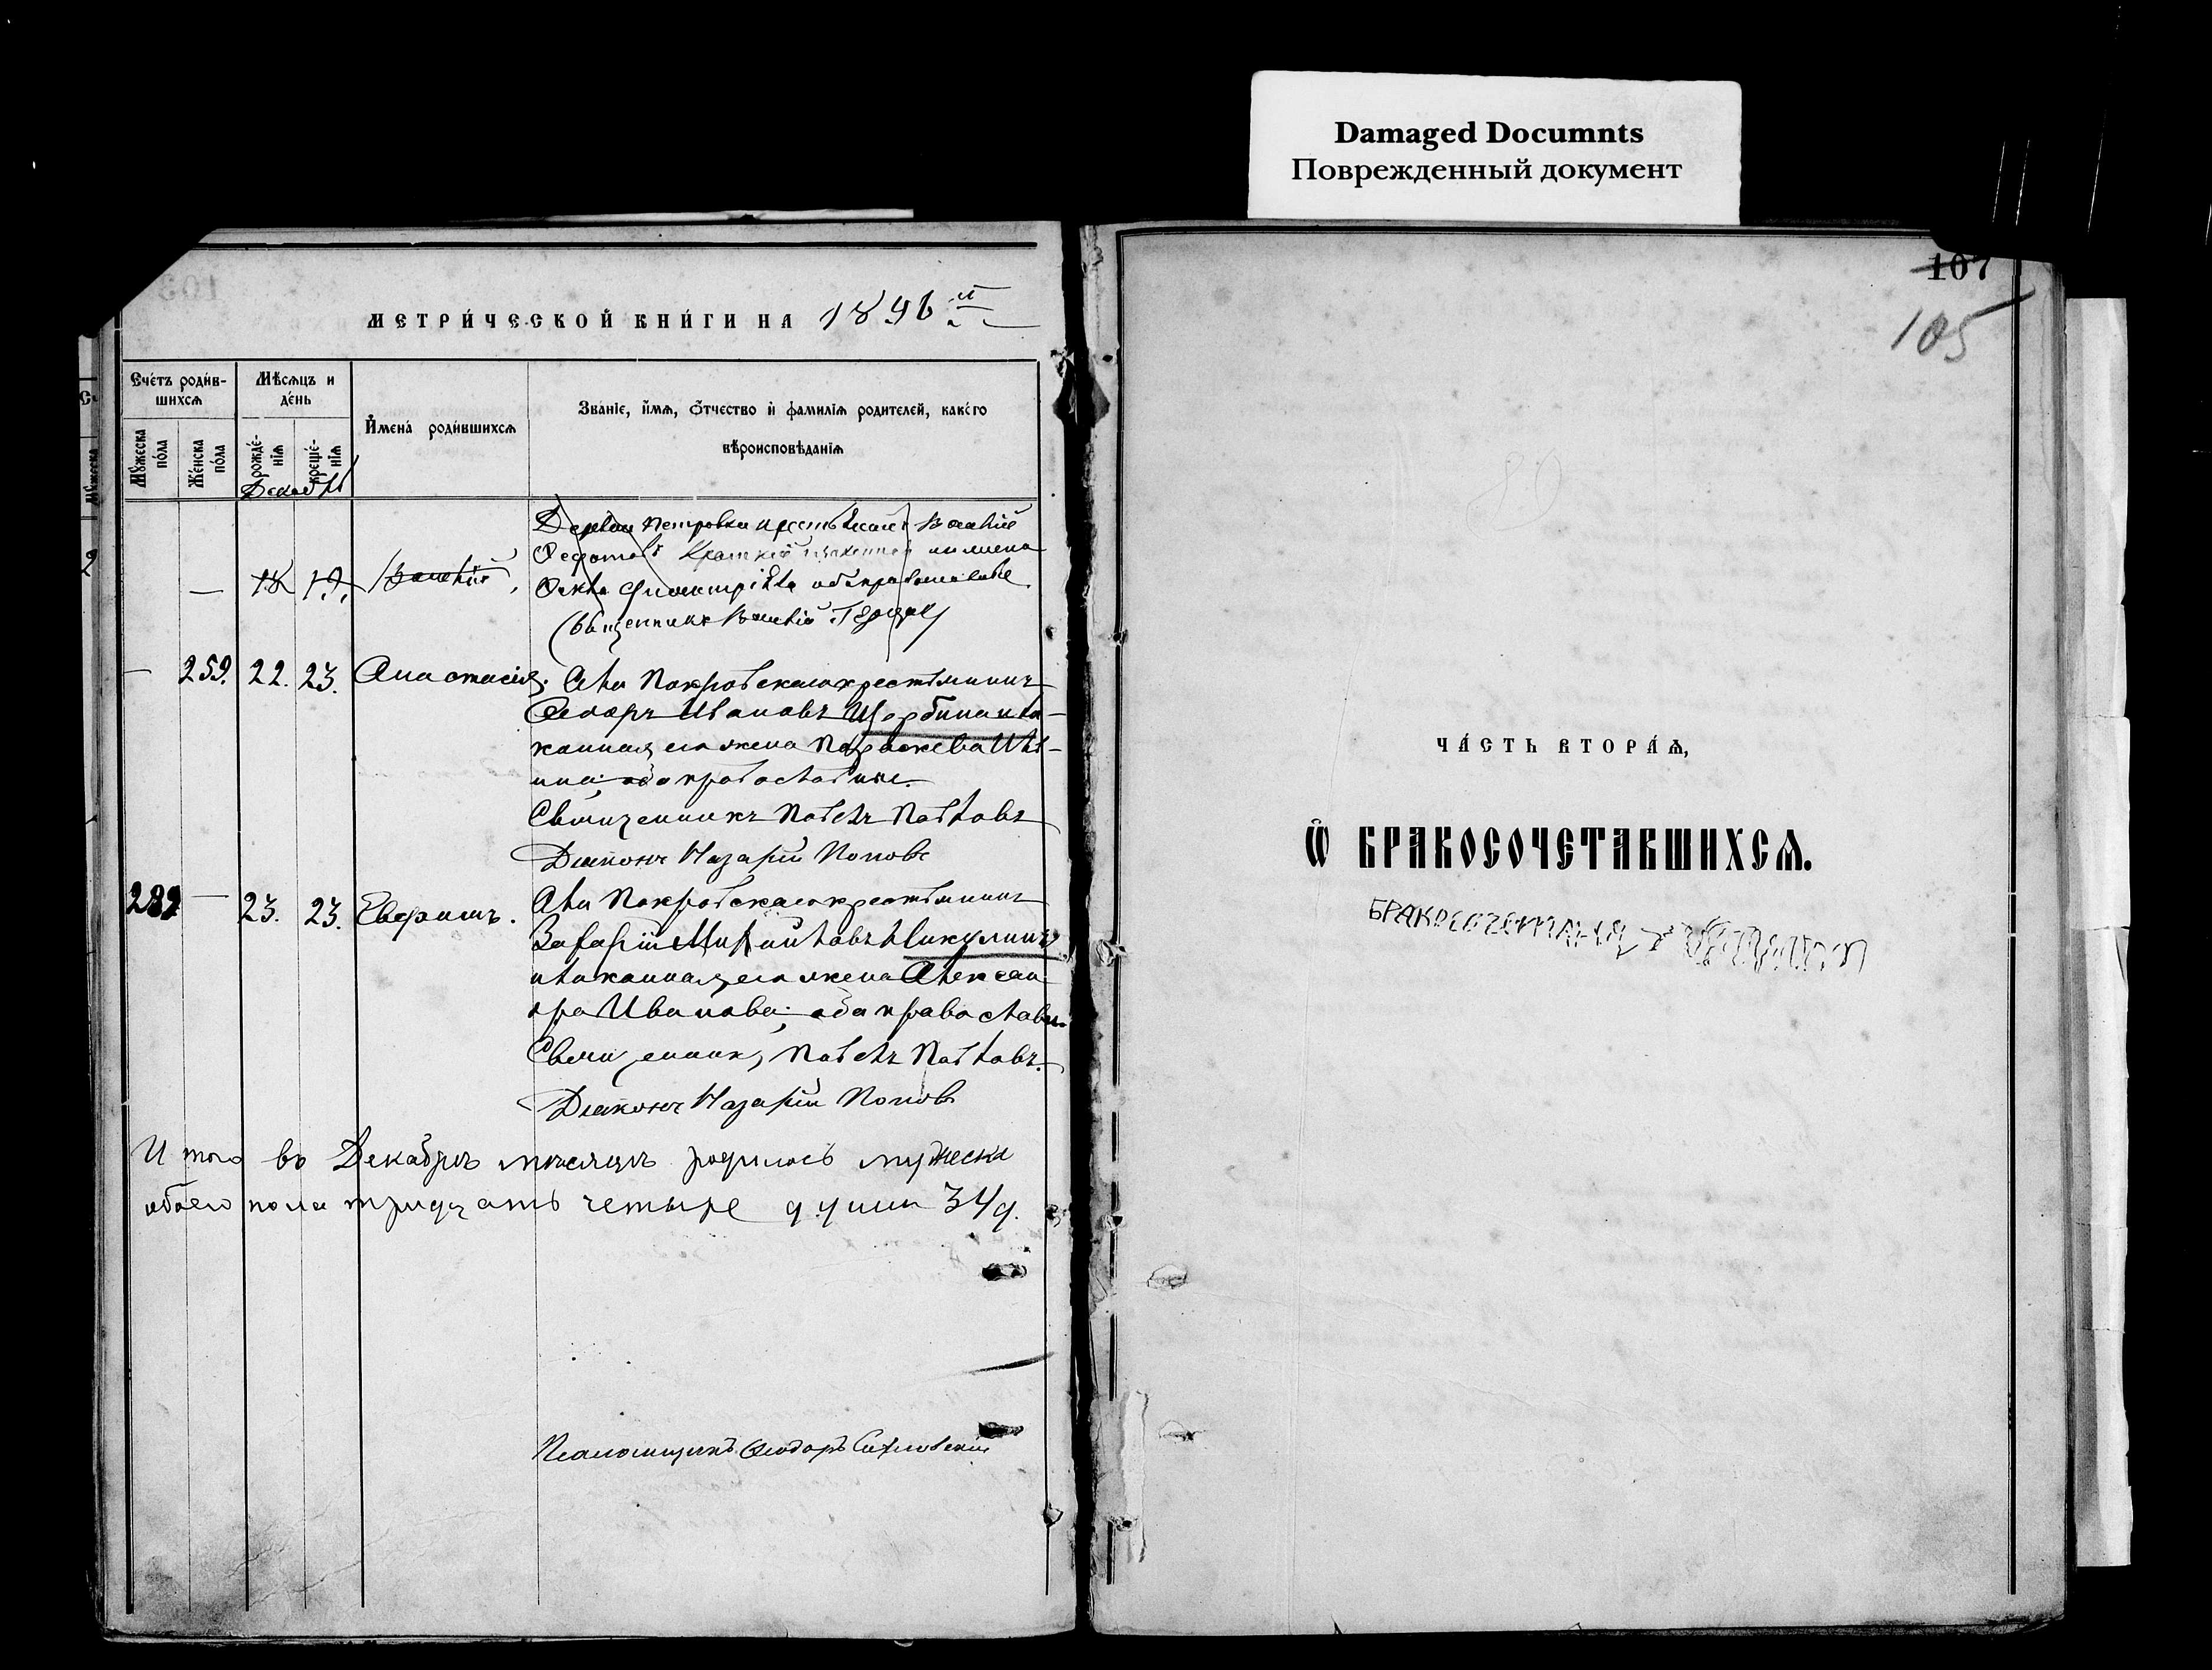 Damaged Documnts
Поврежденный документ
МЕТРИ́ЧЕСКОЙ КНИ́ГИ НА 1896 й
Сче́тъ роди́в-
шихсѧ
Мѣ́сѧцъ и
де́нь
И҆мена̀ роди́вшихсѧ
Зва́нїе, и҆́мѧ, ѻ҆́тчество и҆ фамилїѧ родителей, како́го
вѣроисповѣданїѧ
Мꙋ́жеска по́ла
Же́нска по́ла
рожде́-нїѧ
креще́-нїѧ
Декабрь
Деревни Петровки крестьянинъ Василій
Федотовъ
Ѳекла Димитріева оба православные
(Священникъ Василій
— 18 19. Василій
— 259. 22. 23. Анастасія. Села Покровскаго крестьянинъ
Ѳеодоръ Ивановъ Щербина и за-
конная его жена Параскева
оба православные.
Священникъ Павелъ Павловъ
Діаконъ Назарій Поповъ
282 — 23. 23. Евфимъ. Села Покровскаго крестьянинъ
Захарій Михайловъ Никулинъ
и законная его жена Алексан-
дра Иванова; оба православн.
Священникъ Павелъ Павловъ.
Діаконъ Назарій Поповъ
Итого въ Декабрѣ мѣсяцѣ родилось мужеска
обоего пола тридцать четыре души 34 д.
Псаломщикъ Ѳеодоръ
107
105
ЧА́СТЬ ВТОРА́Ѧ,
Ѡ҆ БРАКОСОЧЕТАВШИХСѦ.
БРАКОСОЧЕТАНИЯ